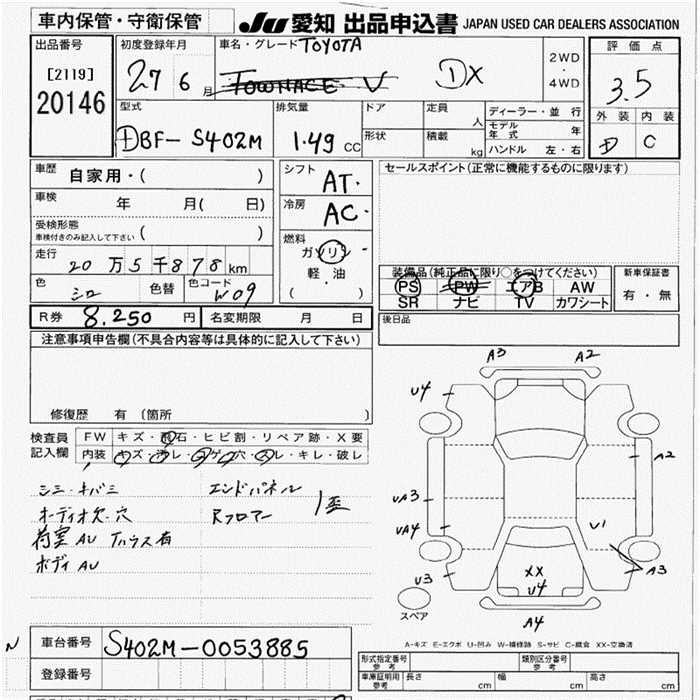 車内保管・守衛保管
JU 愛知 出品申込書 JAPAN USED CAR DEALERS ASSOCIATION
出品番号
[2119]
20146
初度登録年月
27 6 月
車名・グレード TOYOTA
TOWNACE V DX
2WD
・
4WD
評価点
3.5
外装 内装
D C
型式
DBF-S402M
排気量
1.49 CC
ドア
形状
定員 人
積載 kg
ディーラー・並行
モデル年式 年
ハンドル 左・右
車歴 自家用・( )
車検 年 月( 日)
受検形態
車検付きのみ記入して下さい ( )
走行 20万5千878km
色 シロ 色替 色コード W09
シフト AT.
冷房 AC.
燃料
ガソリン・
軽・油
( )
セールスポイント(正常に機能するものに限ります)
装備品(純正品に限り○をつけてください)
PS PW エアB AW
SR ナビ TV カワシート
新車保証書
有・無
後日品
R券 8.250 円 名変期限 月 日
注意事項申告欄(不具合内容等は具体的に記入して下さい)
修復歴 有(箇所 )
検査員
記入欄
FW キズ・飛石・ヒビ割・リペア跡・X要
内装 キズ・汚レ・コゲ・穴・スレ・キレ・破レ
シミ・キバミ
オーディオ欠・穴
荷室AU
ボディAU
エンドパネル
Rフロアー
A3 A2
U4
A2
UA3
UA4
U1
U3
A3
XX
U4
A4
スペア
A-キズ E-エクボ U-凹み W-補修跡 S-サビ C-腐食 XX-交換済
N
車台番号 S402M-0053885
登録番号
形式指定番号
参考
類別区分番号
参考
車庫証明用
参考
長さ cm 幅 cm 高さ cm